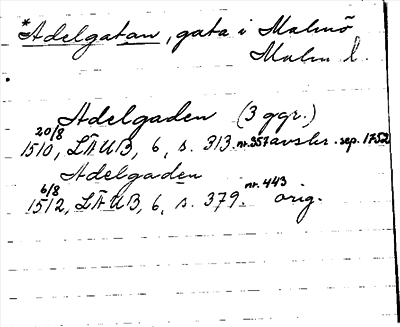 *Adelgatan, gata i Malmö
Malm l.
Adelgaden (3 ggr.)
20/8
1510, LÄUB, 6, s. 313. nr. 357 avskr. sep. 1752
Adelgaden
6/8
1512, LÄUB, 6, s. 379. nr. 443 orig.